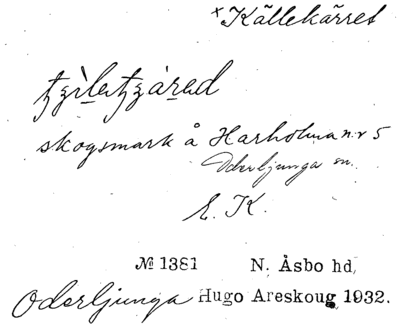 × Källekärret
tzìlatzárad
skogsmark å Harholma nr 5
Oderljunga sn.
E. K.
№ 1381 N. Åsbo hd,
Oderljunga Hugo Areskoug 1932.